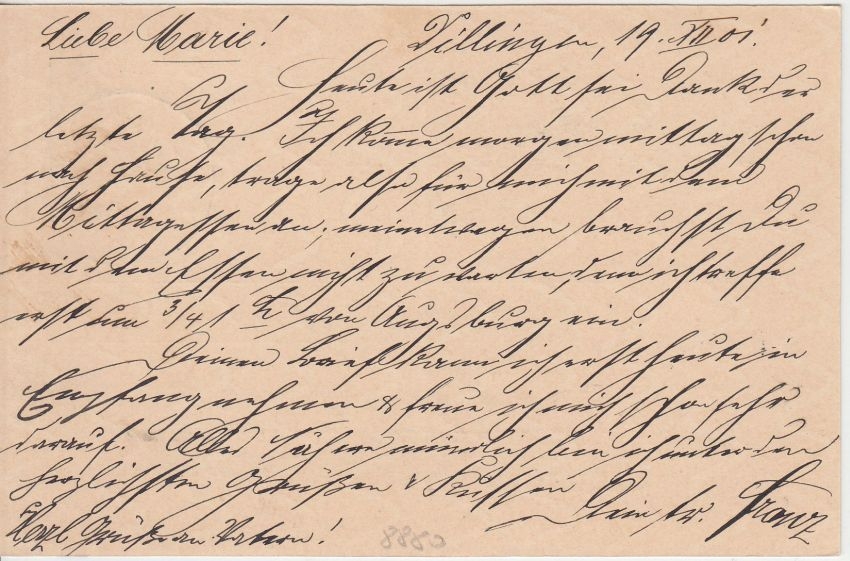 Liebe Marie! Dillingen, 19. XII 01.
Heute ist Gott sei Dank der
letzte Tag. Ich komme morgen mittag schon
nach Hause, trage also für mich mit dem
Mittagessen an; meinetwegen brauchst Du
mit dem Essen nicht zu warten, denn ich treffe
erst um 3/4 1 h von Augsburg ein.
Deinen Brief kann ich erst heute in
Empfang nehmen & freue ich mich schon sehr
darauf. Alles Nähere mündlich bin ich unter den
herzlichsten Grüßen & Küssen
Dein tr. Franz
Herzl. Grüße an Vatern!
8880